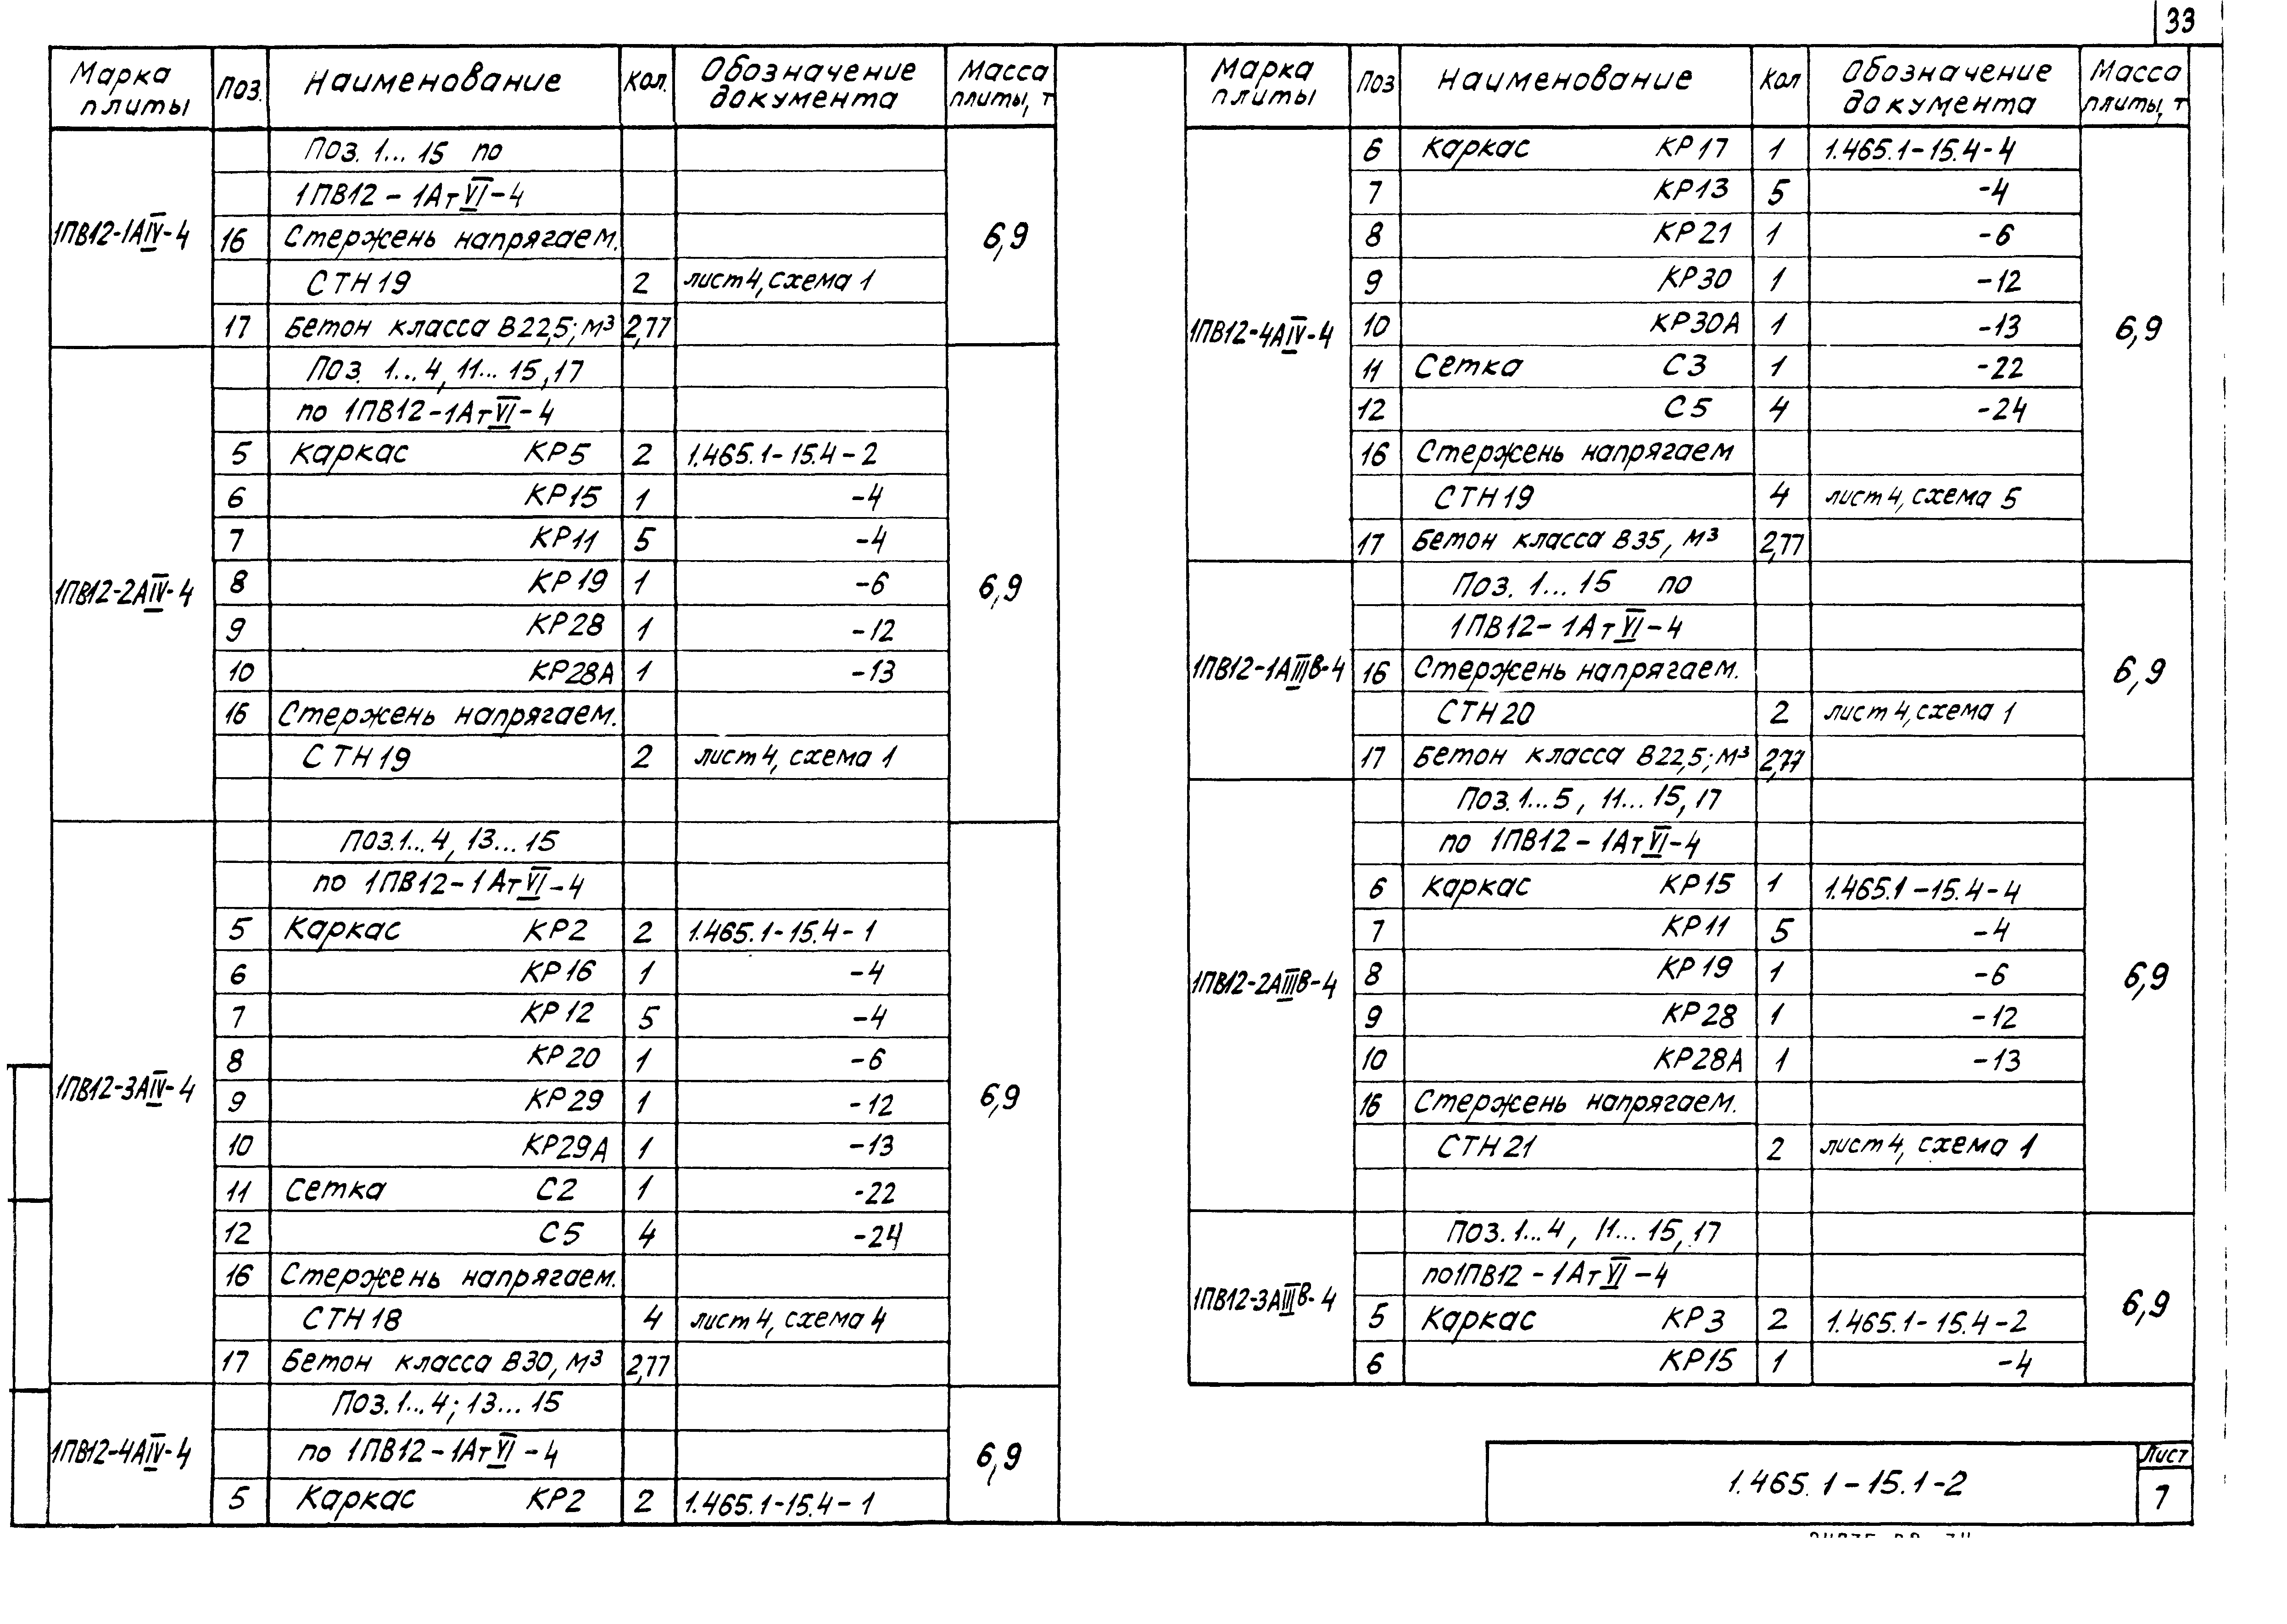 33
Марка плиты | Поз. | Наименование | Кол. | Обозначение документа | Масса плиты, т
Поз. 1...15 по
1ПВ12-1АтVI-4
1ПВ12-1АIV-4 | 16 | Стержень напрягаем. | 6,9
СТН19 | 2 | лист 4, схема 1
17 | Бетон класса В22,5; м³ | 2,77
Поз. 1...4, 11...15, 17
по 1ПВ12-1АтVI-4
5 | Каркас КР5 | 2 | 1.465.1-15.4-2
6 | КР15 | 1 | -4
7 | КР11 | 5 | -4
1ПВ12-2АIV-4 | 8 | КР19 | 1 | -6 | 6,9
9 | КР28 | 1 | -12
10 | КР28А | 1 | -13
16 | Стержень напрягаем.
СТН19 | 2 | лист 4, схема 1
Поз. 1...4, 13...15
по 1ПВ12-1АтVI-4
5 | Каркас КР2 | 2 | 1.465.1-15.4-1
6 | КР16 | 1 | -4
7 | КР12 | 5 | -4
8 | КР20 | 1 | -6
1ПВ12-3АIV-4 | 9 | КР29 | 1 | -12 | 6,9
10 | КР29А | 1 | -13
11 | Сетка С2 | 1 | -22
12 | С5 | 4 | -24
16 | Стержень напрягаем.
СТН18 | 4 | лист 4, схема 4
17 | Бетон класса В30, м³ | 2,77
Поз. 1...4; 13...15
1ПВ12-4АIV-4 | по 1ПВ12-1АтVI-4 | 6,9
5 | Каркас КР2 | 2 | 1.465.1-15.4-1
Марка плиты | Поз | Наименование | Кол | Обозначение документа | Масса плиты, т
6 | Каркас КР17 | 1 | 1.465.1-15.4-4
7 | КР13 | 5 | -4
8 | КР21 | 1 | -6
9 | КР30 | 1 | -12
1ПВ12-4АIV-4 | 10 | КР30А | 1 | -13 | 6,9
11 | Сетка С3 | 1 | -22
12 | С5 | 4 | -24
16 | Стержень напрягаем
СТН19 | 4 | лист 4, схема 5
17 | Бетон класса В35, м³ | 2,77
Поз. 1...15 по
1ПВ12-1АтVI-4
1ПВ12-1АIIIВ-4 | 16 | Стержень напрягаем. | 6,9
СТН20 | 2 | лист 4, схема 1
17 | Бетон класса В22,5; м³ | 2,77
Поз. 1...5, 11...15, 17
по 1ПВ12-1АтVI-4
6 | Каркас КР15 | 1 | 1.465.1-15.4-4
7 | КР11 | 5 | -4
1ПВ12-2АIIIВ-4 | 8 | КР19 | 1 | -6 | 6,9
9 | КР28 | 1 | -12
10 | КР28А | 1 | -13
16 | Стержень напрягаем.
СТН21 | 2 | лист 4, схема 1
Поз. 1...4, 11...15, 17
по 1ПВ12-1АтVI-4
1ПВ12-3АIIIВ-4 | 5 | Каркас КР3 | 2 | 1.465.1-15.4-2 | 6,9
6 | КР15 | 1 | -4
1.465.1-15.1-2
Лист
7